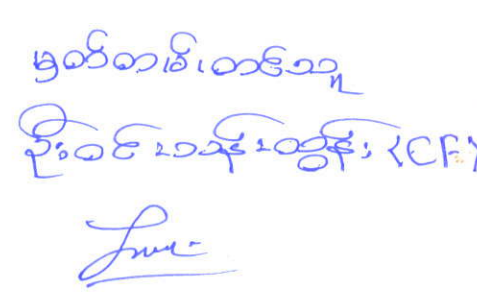 မှတ်တမ်းတင်သူ
ဦးဝင်းသန်းထွန်း (CF)